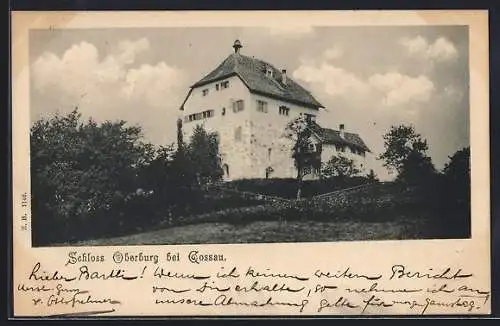 Z. B. 1140.
Schloss Oberburg bei Gossau.
Lieber Bartli! Wenn ich keinen weitern Bericht
von Dir erhalte, so nehme ich an
unsere Abmachung gelte für morgen